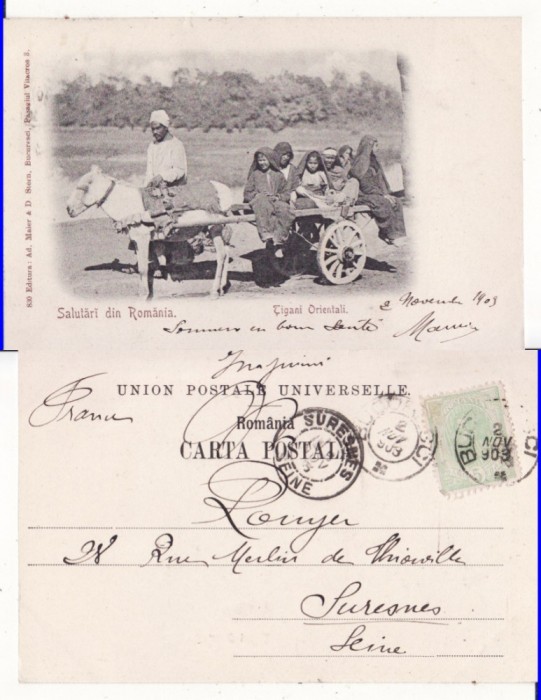 800 Editura: Ad. Maier & D. Stern, Bucuresti, Pasagiul Vilacros 3.
Salutări din România.
Țigani Orientali.
2 Novembre 1903
Sommes en bonne santé
UNION POSTALE UNIVERSELLE.
France
România
CARTA POSTALĂ
SURESNES
SEINE
2
NOV
903
BUC
CI
2
NOV
903
Rouyer
28 Rue Merlin de Thionville
Suresnes
Seine